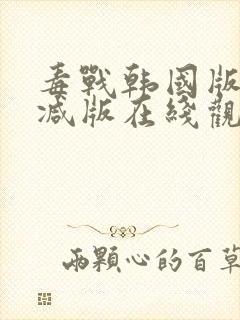 毒戰韩國版
减版在綫觀
兩顆心的百草